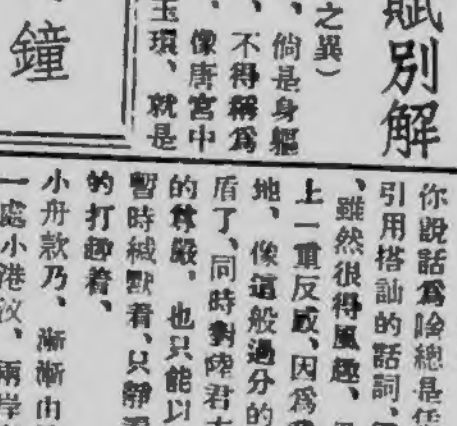 賦別解
之異）
、倘是身軀
、不得稱爲
、像唐宮中
玉環、就是
鐘
你說話爲啥總是
引用搭訕的話詞、
、雖然很得風趣、
上一重反感、因爲
地、像這般過分的
盾了、同時對陸君
的尊嚴、也只能以
暫時緘默着、只靜
的打趣着、
小舟款乃、漸漸由
一處小港汊、兩岸